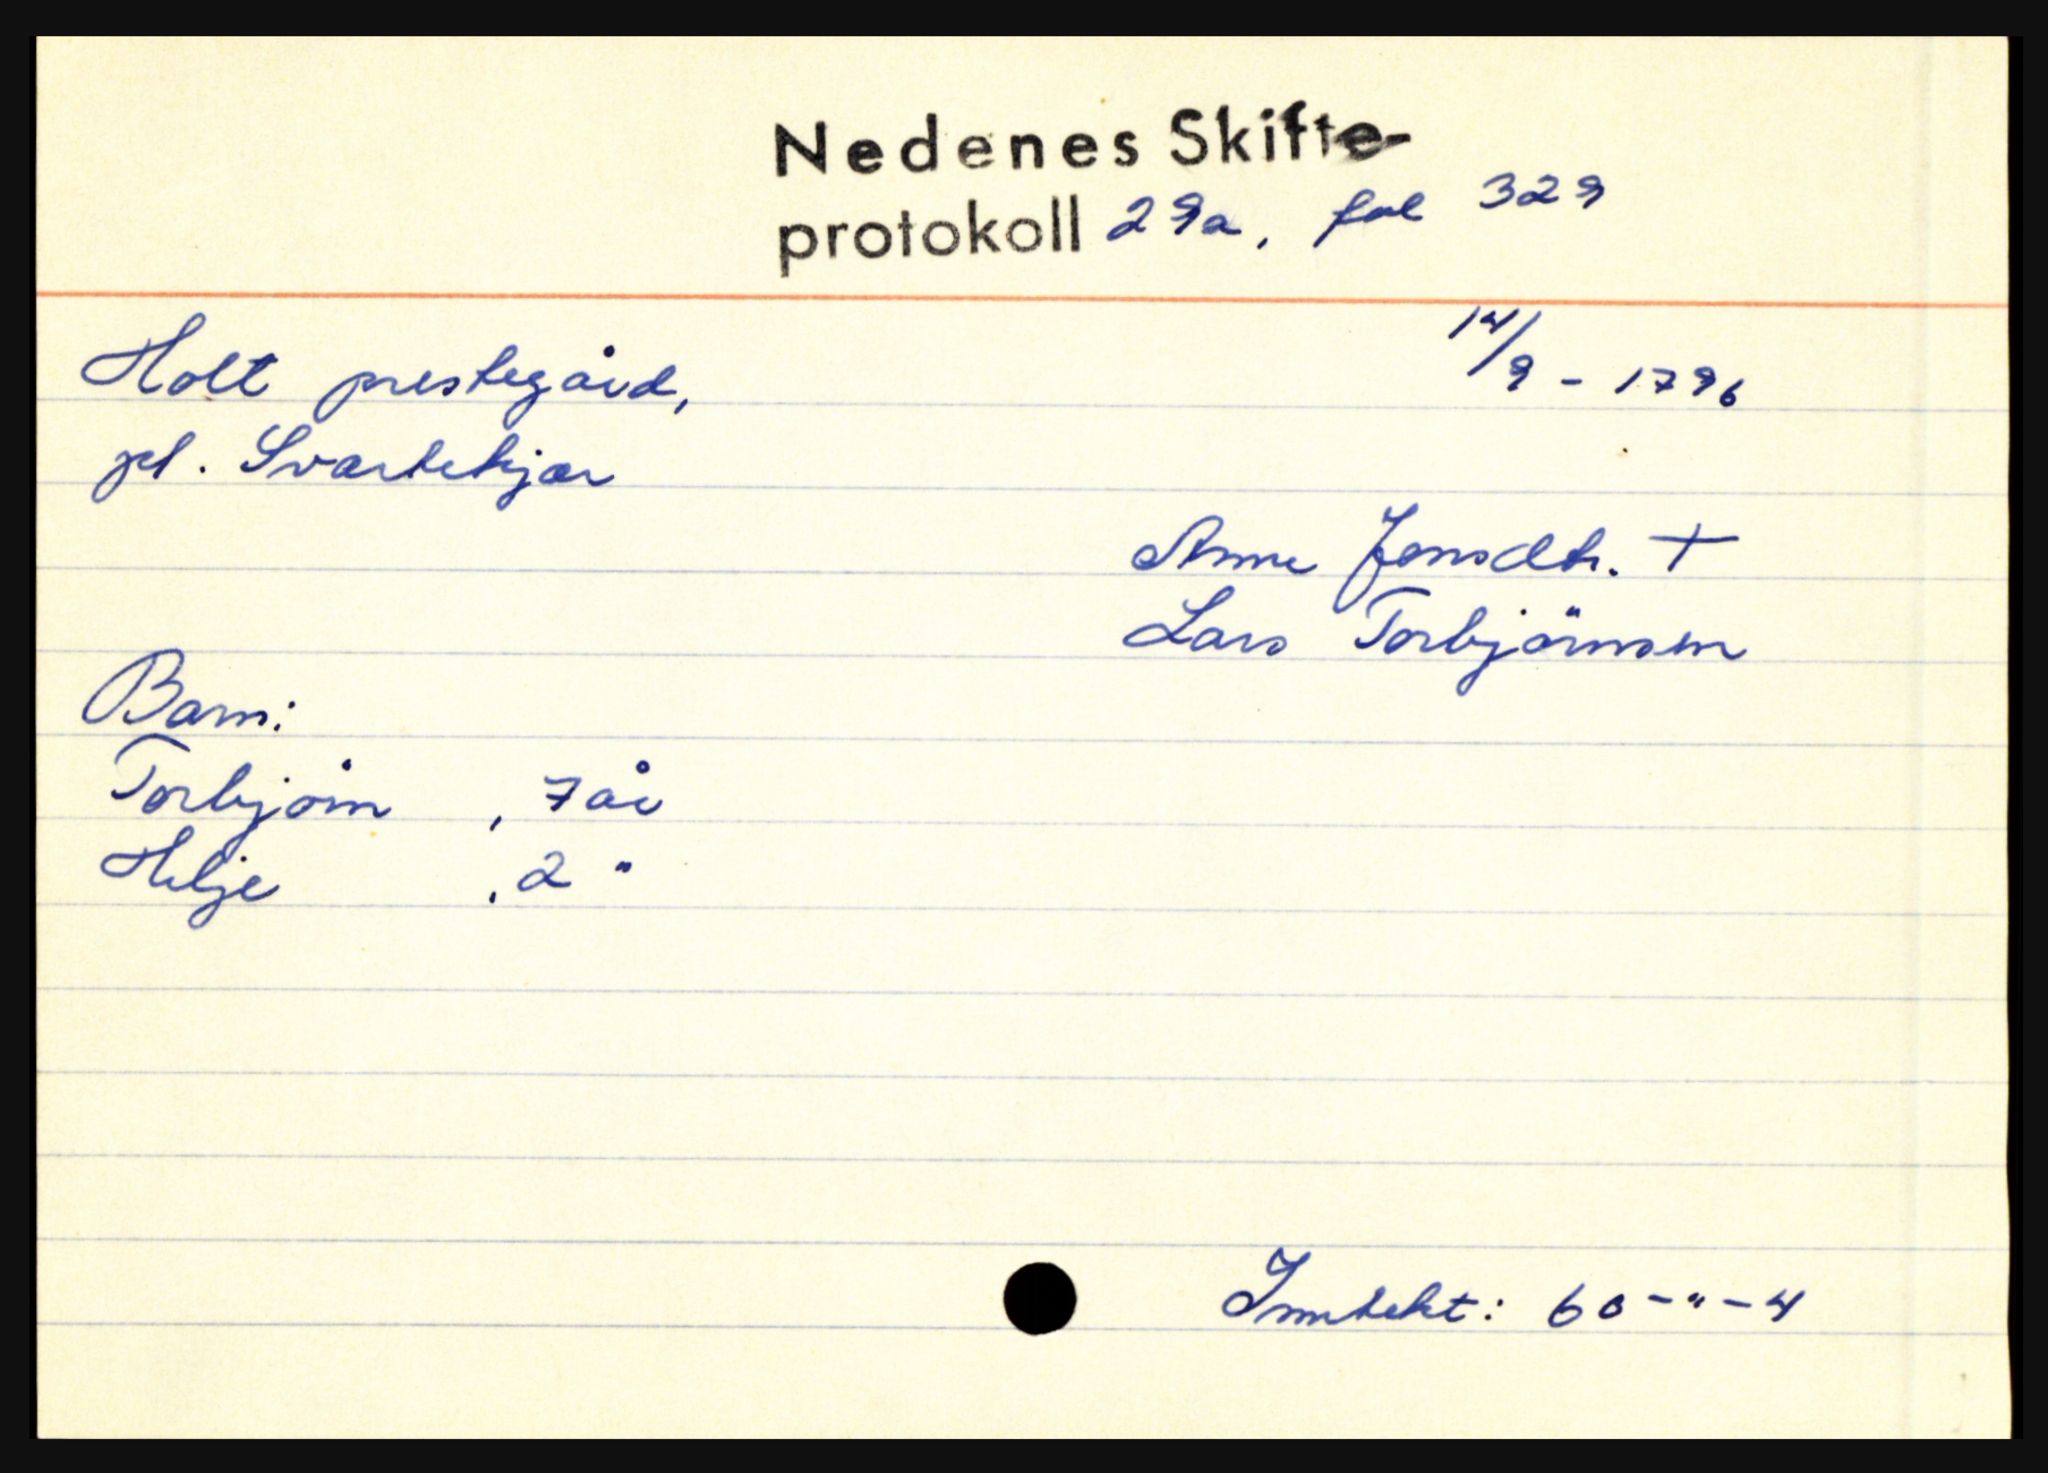 Nedenes Skifte-
protokoll 29a, fol 329
14/9 - 1796
Holt prestegård,
pl. Svartekjær
Anne Jensdtr. +
Lars Torbjörnsen
Barn:
Torbjørn , 7 år
Helje , 2 "
Inntekt: 60-"-4